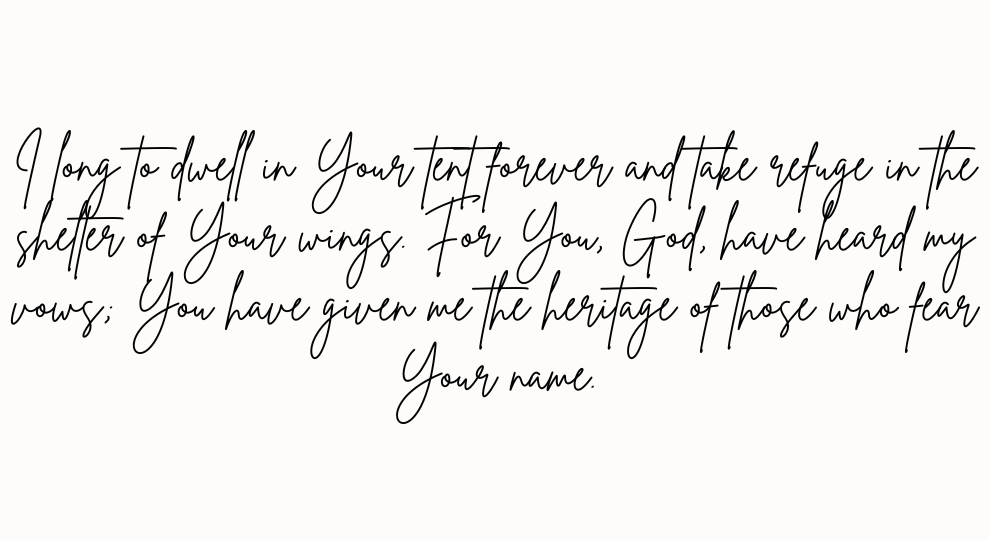 I long to dwell in Your tent forever and take refuge in the
shelter of Your wings. For You, God, have heard my
vows; You have given me the heritage of those who fear
Your name.